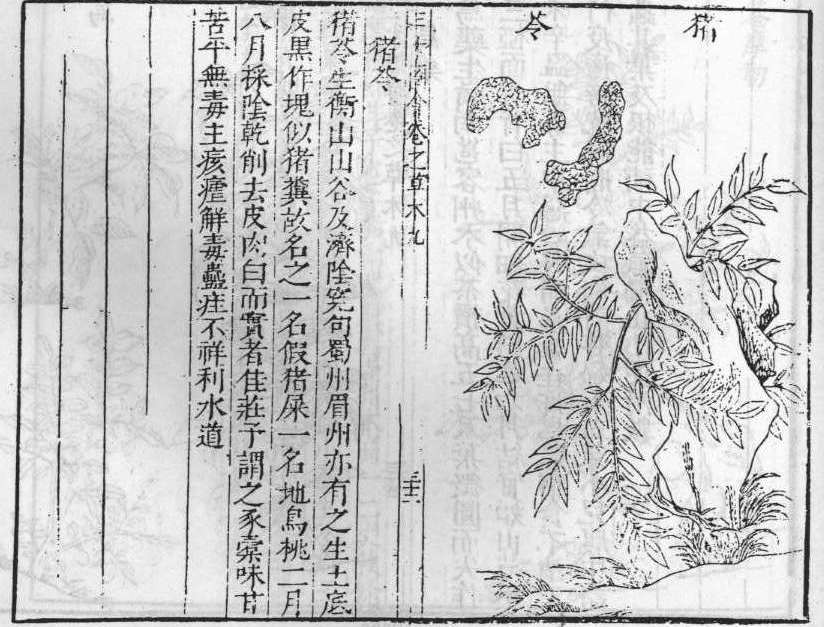 猪苓
三才圖會卷之草木九
三十二
猪苓
猪苓生衡山山谷及濟陰宛句蜀州眉州亦有之生土底
皮黑作塊似猪糞故名之一名假猪屎一名地烏桃二月
八月採陰乾削去皮肉白而實者佳莊子謂之豕橐味甘
苦平無毒主痎瘧解毒蠱疰不祥利水道